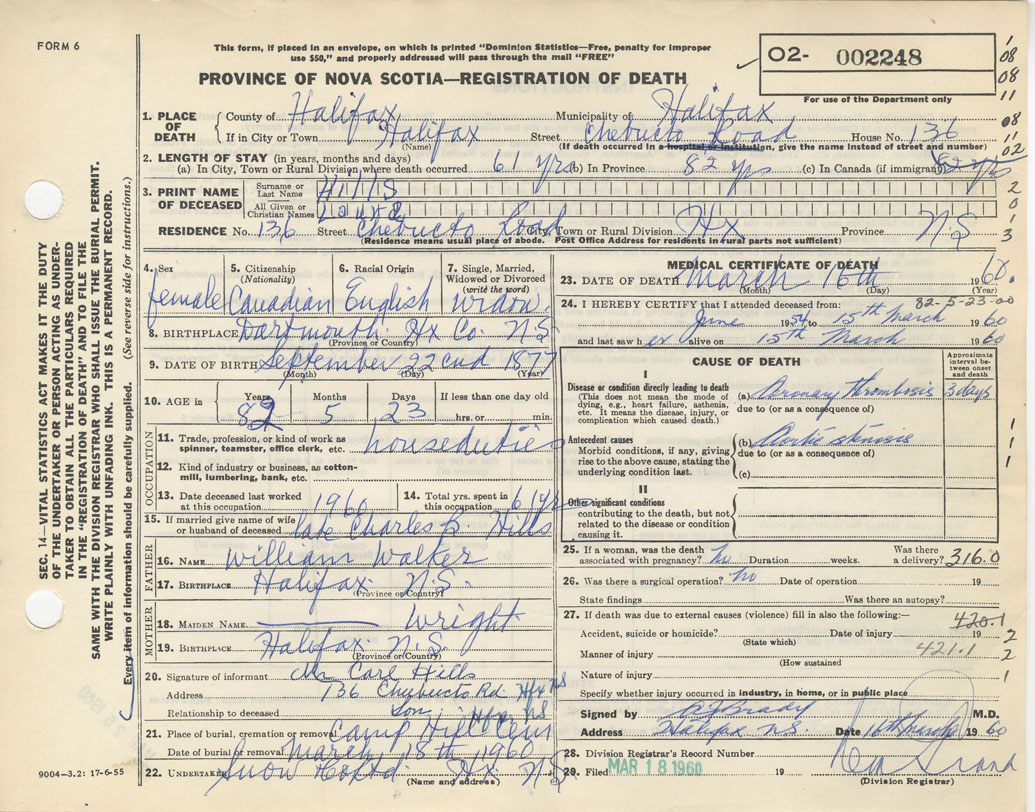 FORM 6
This form, if placed in an envelope, on which is printed "Dominion Statistics—Free, penalty for improper
use $50," and properly addressed will pass through the mail "FREE"
PROVINCE OF NOVA SCOTIA—REGISTRATION OF DEATH
O2- 002248
For use of the Department only
08
08
11
08
11
02
2
0
3
1. PLACE OF DEATH
County of Halifax Municipality of Halifax
If in City or Town Halifax Street Chebucto Road House No. 136
(Name) (If death occurred in a hospital or institution, give the name instead of street and number)
2. LENGTH OF STAY (in years, months and days)
(a) In City, Town or Rural Division where death occurred 61 yrs (b) In Province 82 yrs (c) In Canada (if immigrant) 82 yrs
3. PRINT NAME OF DECEASED
Surname or Last Name HILLS
All Given or Christian Names Laura
RESIDENCE No. 136 Street Chebucto Road City, Town or Rural Division Hx Province N.S.
(Residence means usual place of abode. Post Office Address for residents in rural parts not sufficient)
4. Sex female
5. Citizenship (Nationality) Canadian
6. Racial Origin English
7. Single, Married, Widowed or Divorced (write the word) widow
8. BIRTHPLACE Dartmouth Hx Co. N.S.
(Province or Country)
9. DATE OF BIRTH September 22cnd 1877
(Month) (Day) (Year)
10. AGE in Years 82 Months 5 Days 23 If less than one day old
hrs. or min.
OCCUPATION
11. Trade, profession, or kind of work as spinner, teamster, office clerk, etc. houseduties
12. Kind of industry or business, as cotton-mill, lumbering, bank, etc.
13. Date deceased last worked at this occupation 1960
14. Total yrs. spent in this occupation 61 yrs
15. If married give name of wife or husband of deceased late Charles B. Hills
FATHER
16. NAME William Walker
17. BIRTHPLACE Halifax N.S.
(Province or Country)
MOTHER
18. MAIDEN NAME Wright
19. BIRTHPLACE Halifax N.S.
(Province or Country)
20. Signature of informant Mr Carl Hills
Address 136 Chebucto Rd. Hfx NS
Relationship to deceased Son Hfx NS
21. Place of burial, cremation or removal Camp Hill Cem
Date of burial or removal March 18th 1960
22. UNDERTAKER Snow Co Ltd Hx N.S
(Name and address)
MEDICAL CERTIFICATE OF DEATH
23. DATE OF DEATH March 16th 1960.
(Month) (Day) (Year)
24. I HEREBY CERTIFY that I attended deceased from: 82-5-23-00
June 1954 to 15th March 1960
and last saw her alive on 15th March 1960
CAUSE OF DEATH
Approximate interval between onset and death
I
Disease or condition directly leading to death
(This does not mean the mode of dying, e.g., heart failure, asthenia, etc. It means the disease, injury, or complication which caused death.)
(a) Coronary thrombosis 3 days
due to (or as a consequence of)
Antecedent causes
Morbid conditions, if any, giving rise to the above cause, stating the underlying condition last.
(b) Aortic stenosis
due to (or as a consequence of)
(c)
II
Other significant conditions
contributing to the death, but not related to the disease or condition causing it.
1
1
1
25. If a woman, was the death associated with pregnancy? no Duration weeks. Was there a delivery? 316.0
26. Was there a surgical operation? no Date of operation 19
State findings Was there an autopsy?
27. If death was due to external causes (violence) fill in also the following:—
420.1
Accident, suicide or homicide? Date of injury 19 2
(State which)
421.1
Manner of injury 2
(How sustained
Nature of injury 1
Specify whether injury occurred in industry, in home, or in public place
Signed by Brady M.D.
Address Halifax N.S. Date 16th March 1960
28. Division Registrar's Record Number
29. Filed MAR 18 1960 19
(Division Registrar)
SEC. 14—VITAL STATISTICS ACT MAKES IT THE DUTY
OF THE UNDERTAKER OR PERSON ACTING AS UNDER-
TAKER TO OBTAIN ALL THE PARTICULARS REQUIRED
IN THE "REGISTRATION OF DEATH" AND TO FILE THE
SAME WITH THE DIVISION REGISTRAR WHO SHALL ISSUE THE BURIAL PERMIT.
WRITE PLAINLY WITH UNFADING INK. THIS IS A PERMANENT RECORD.
Every item of information should be carefully supplied. (See reverse side for instructions.)
9004—3.2: 17-6-55